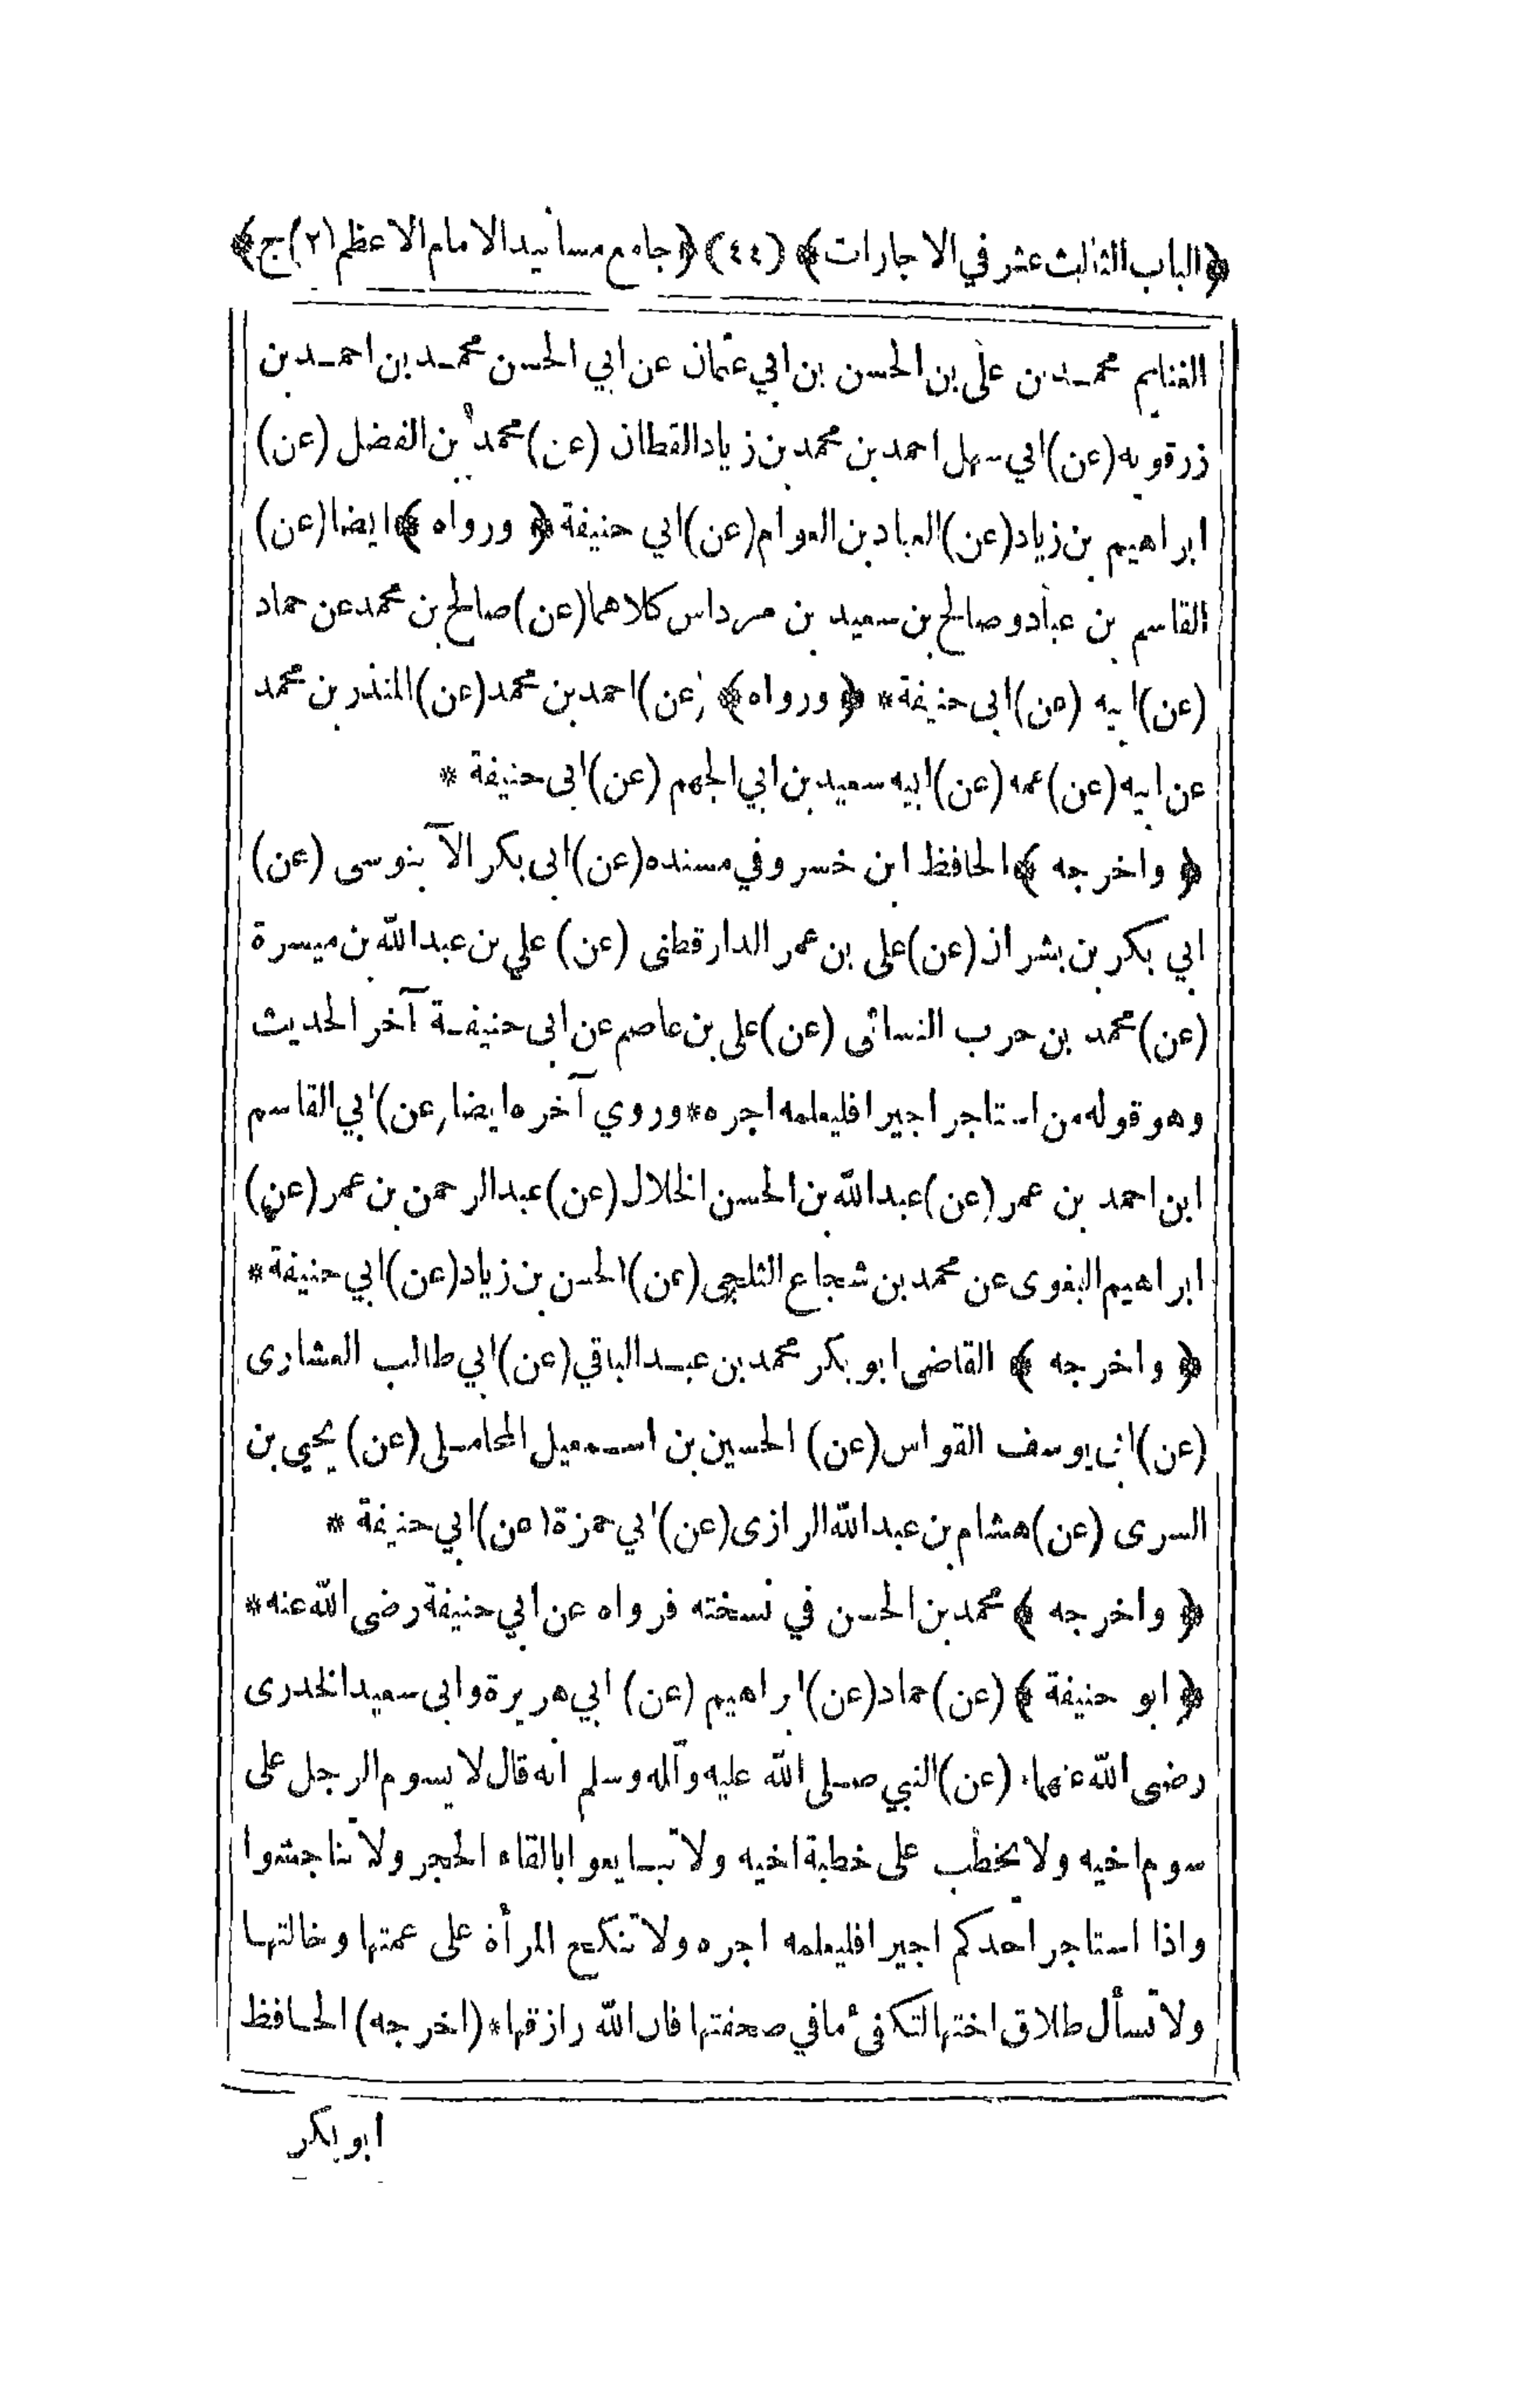 ﴿الباب الثالث عشر في الاجارات﴾ (٤٤) ﴿جامع مسانيد الامام الاعظم (٢) ج﴾
الغنايم محمد بن على بن الحسن بن ابي عثمان عن ابي الحسن محمد بن احمد بن
زرقويه (عن) ابي سهل احمد بن محمد بن زياد القطان (عن) محمد بن الفضل (عن)
ابراهيم بن زياد (عن) العباد بن العوام (عن) ابي حنيفة ﴿ ورواه ﴾ ايضا (عن)
القاسم بن عباد وصالح بن سعيد بن مرداس كلاهما (عن) صالح بن محمد عن حماد
(عن) ابيه (عن) ابى حنيفة * ﴿ ورواه ﴾ (عن) احمد بن محمد (عن) المنذر بن محمد
عن ابيه (عن) عمه (عن) ابيه سعيد بن ابي الجهم (عن) ابى حنيفة *
﴿ واخرجه ﴾ الحافظ ابن خسرو في مسنده (عن) ابى بكر الآبنوسى (عن)
ابي بكر بن بشران (عن) على بن عمر الدارقطنى (عن) علي بن عبد الله بن ميسرة
(عن) محمد بن حرب النسائى (عن) على بن عاصم عن ابى حنيفة آخر الحديث
وهو قوله من استاجر اجيرا فليعلمه اجره * وروي آخره ايضا (عن) ابي القاسم
ابن احمد بن عمر (عن) عبد الله بن الحسن الخلال (عن) عبد الرحمن بن عمر (عن)
ابراهيم البغوى عن محمد بن شجاع الثلجي (عن) الحسن بن زياد (عن) ابي حنيفة *
﴿ واخرجه ﴾ القاضى ابو بكر محمد بن عبد الباقي (عن) ابي طالب العشارى
(عن) ابى يوسف القواس (عن) الحسين بن اسمعيل المحاملى (عن) يحيي بن
السرى (عن) هشام بن عبد الله الرازى (عن) ابي حمزة (عن) ابي حنيفة *
﴿ واخرجه ﴾ محمد بن الحسن في نسخته فرواه عن ابي حنيفة رضى الله عنه *
﴿ ابو حنيفة ﴾ (عن) حماد (عن) ابراهيم (عن) ابي هريرة وابى سعيد الخدرى
رضى الله عنهما (عن) النبي صلى الله عليه وآله وسلم انه قال لا يسوم الرجل على
سوم اخيه ولا يخطب على خطبة اخيه ولا تبايعوا بالقاء الحجر ولا تناجشوا
واذا استاجر احدكم اجيرا فليعلمه اجره ولا تنكح المرأة على عمتها وخالتها
ولا تسأل طلاق اختها لتكفىء ما في صحفتها فان الله رازقها * (اخرجه) الحافظ
ابو بكر